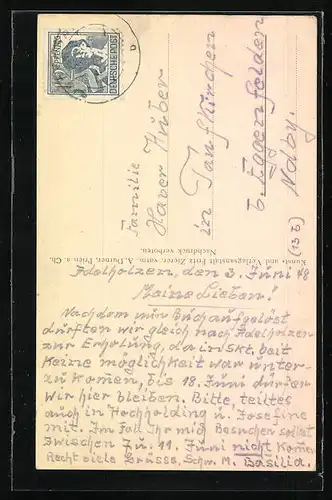 DEUTSCHE POST
Familie
Xaver Huber
in Tanfkirchen
b. Eggenfelden
Ndby.
(13b)
Kunst- und Verlagsanstalt Fritz Zierer, vorm. A. Dorner, Prien a. Ch.
Nachdruck verboten.
Adelholzen, den 3. Juni 48
Meine Lieben!
Nachdem nun Buch aufgelöst
durften wir gleich nach Adelholzen
zur Erholung, da in Skt. Veit
Keine möglichkeit war unter-
zu Komen, bis 18. Juni dürfen
wir hier bleiben. Bitte, teiltes
auch in Hochholding u. Josefine
mit. Im Fall Ihr mich Besuchen solltet
zwischen 7. u. 11. Juni nicht Komen
Recht viele Grüsse, Schw. M. Basilia.